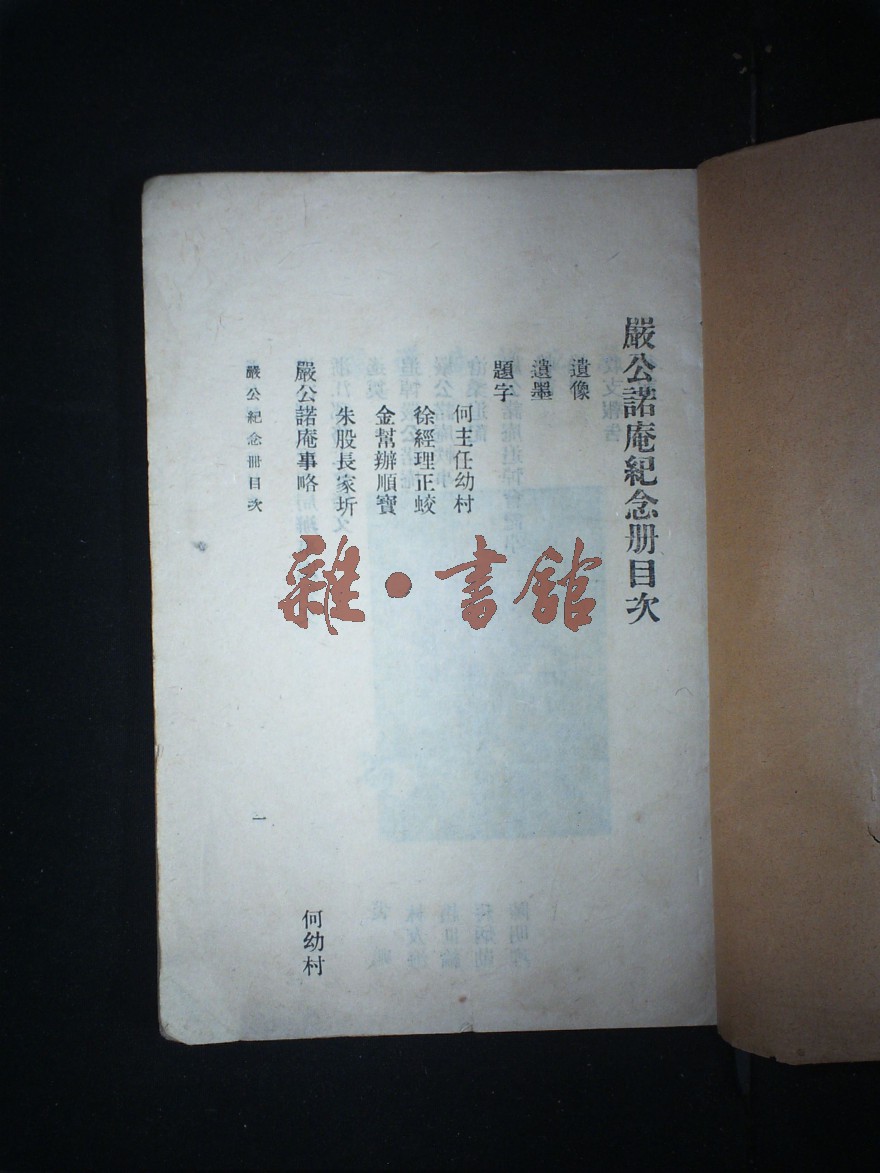 嚴公諾庵紀念册目次
遺像
遺墨
題字
何主任幼村
徐經理正蛟
金幫辦順寶
朱股長家圻
嚴公諾庵事略
何幼村
嚴公紀念冊目次
一
雜·書館